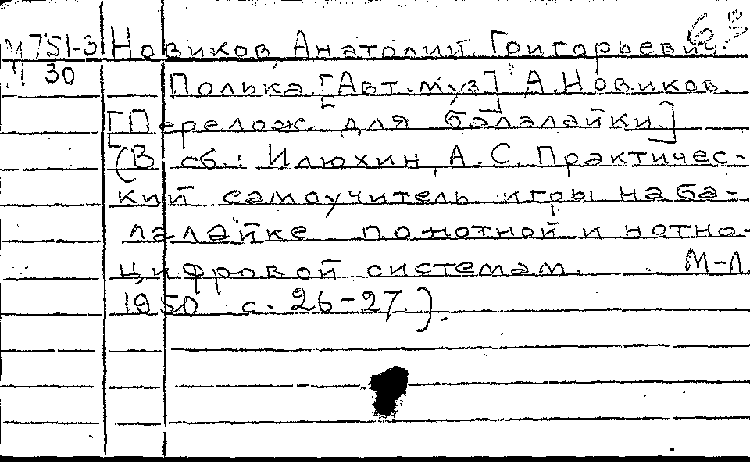 63
М 751-3 Новиков, Анатолий Григорьевич.
30 Полька. [Авт. муз.] А. Новиков.
[Перелож. для балалайки]
(В сб.: Илюхин, А. С. Практичес-
кий самоучитель игры на ба-
лалайке по нотной и нотно-
цифровой системам. М-Л
1950 с. 26-27).